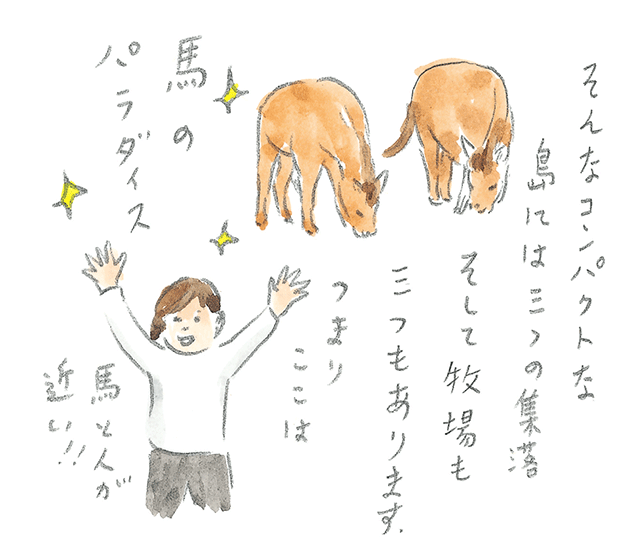 そんなコンパクトな
島には三つの集落
そして牧場も
三つもあります.
つまり
ここは
馬の
パラダイス
馬と人が
近い!!